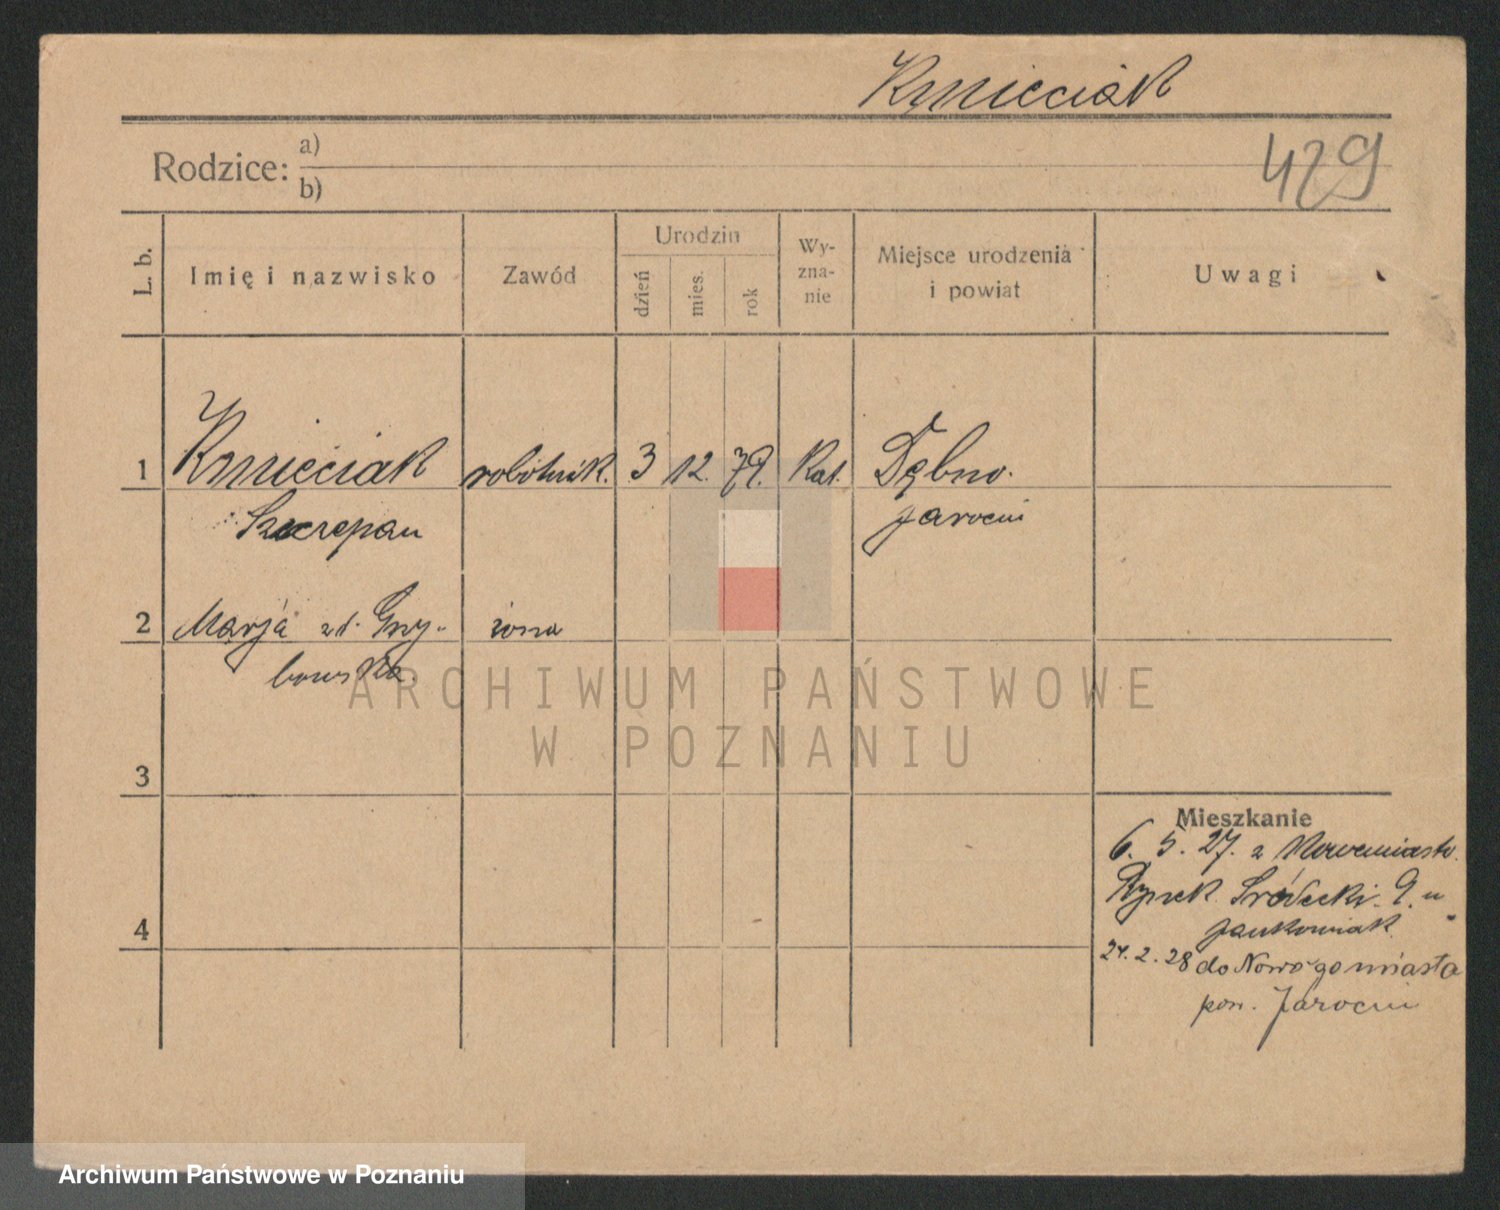 Kmieciak
429
Rodzice: a)
b)
L. b.
Imię i nazwisko
Zawód
Urodzin
dzień
mies.
rok
Wy-
zna-
nie
Miejsce urodzenia
i powiat
Uwagi
1 Kmieciak robotnik. 3 12. 79. Kat. Dębno.
Szczepan Jarocin
2 Marja zd. Grzy- żona
bowska
ARCHIWUM PAŃSTWOWE
W POZNANIU
3
Mieszkanie
6. 5. 27. z Nowemiasto.
Rynek Śródecki 9. u
Jankowiak
4
24. 2. 28 do Nowego miasta
pow. Jarocin
Archiwum Państwowe w Poznaniu